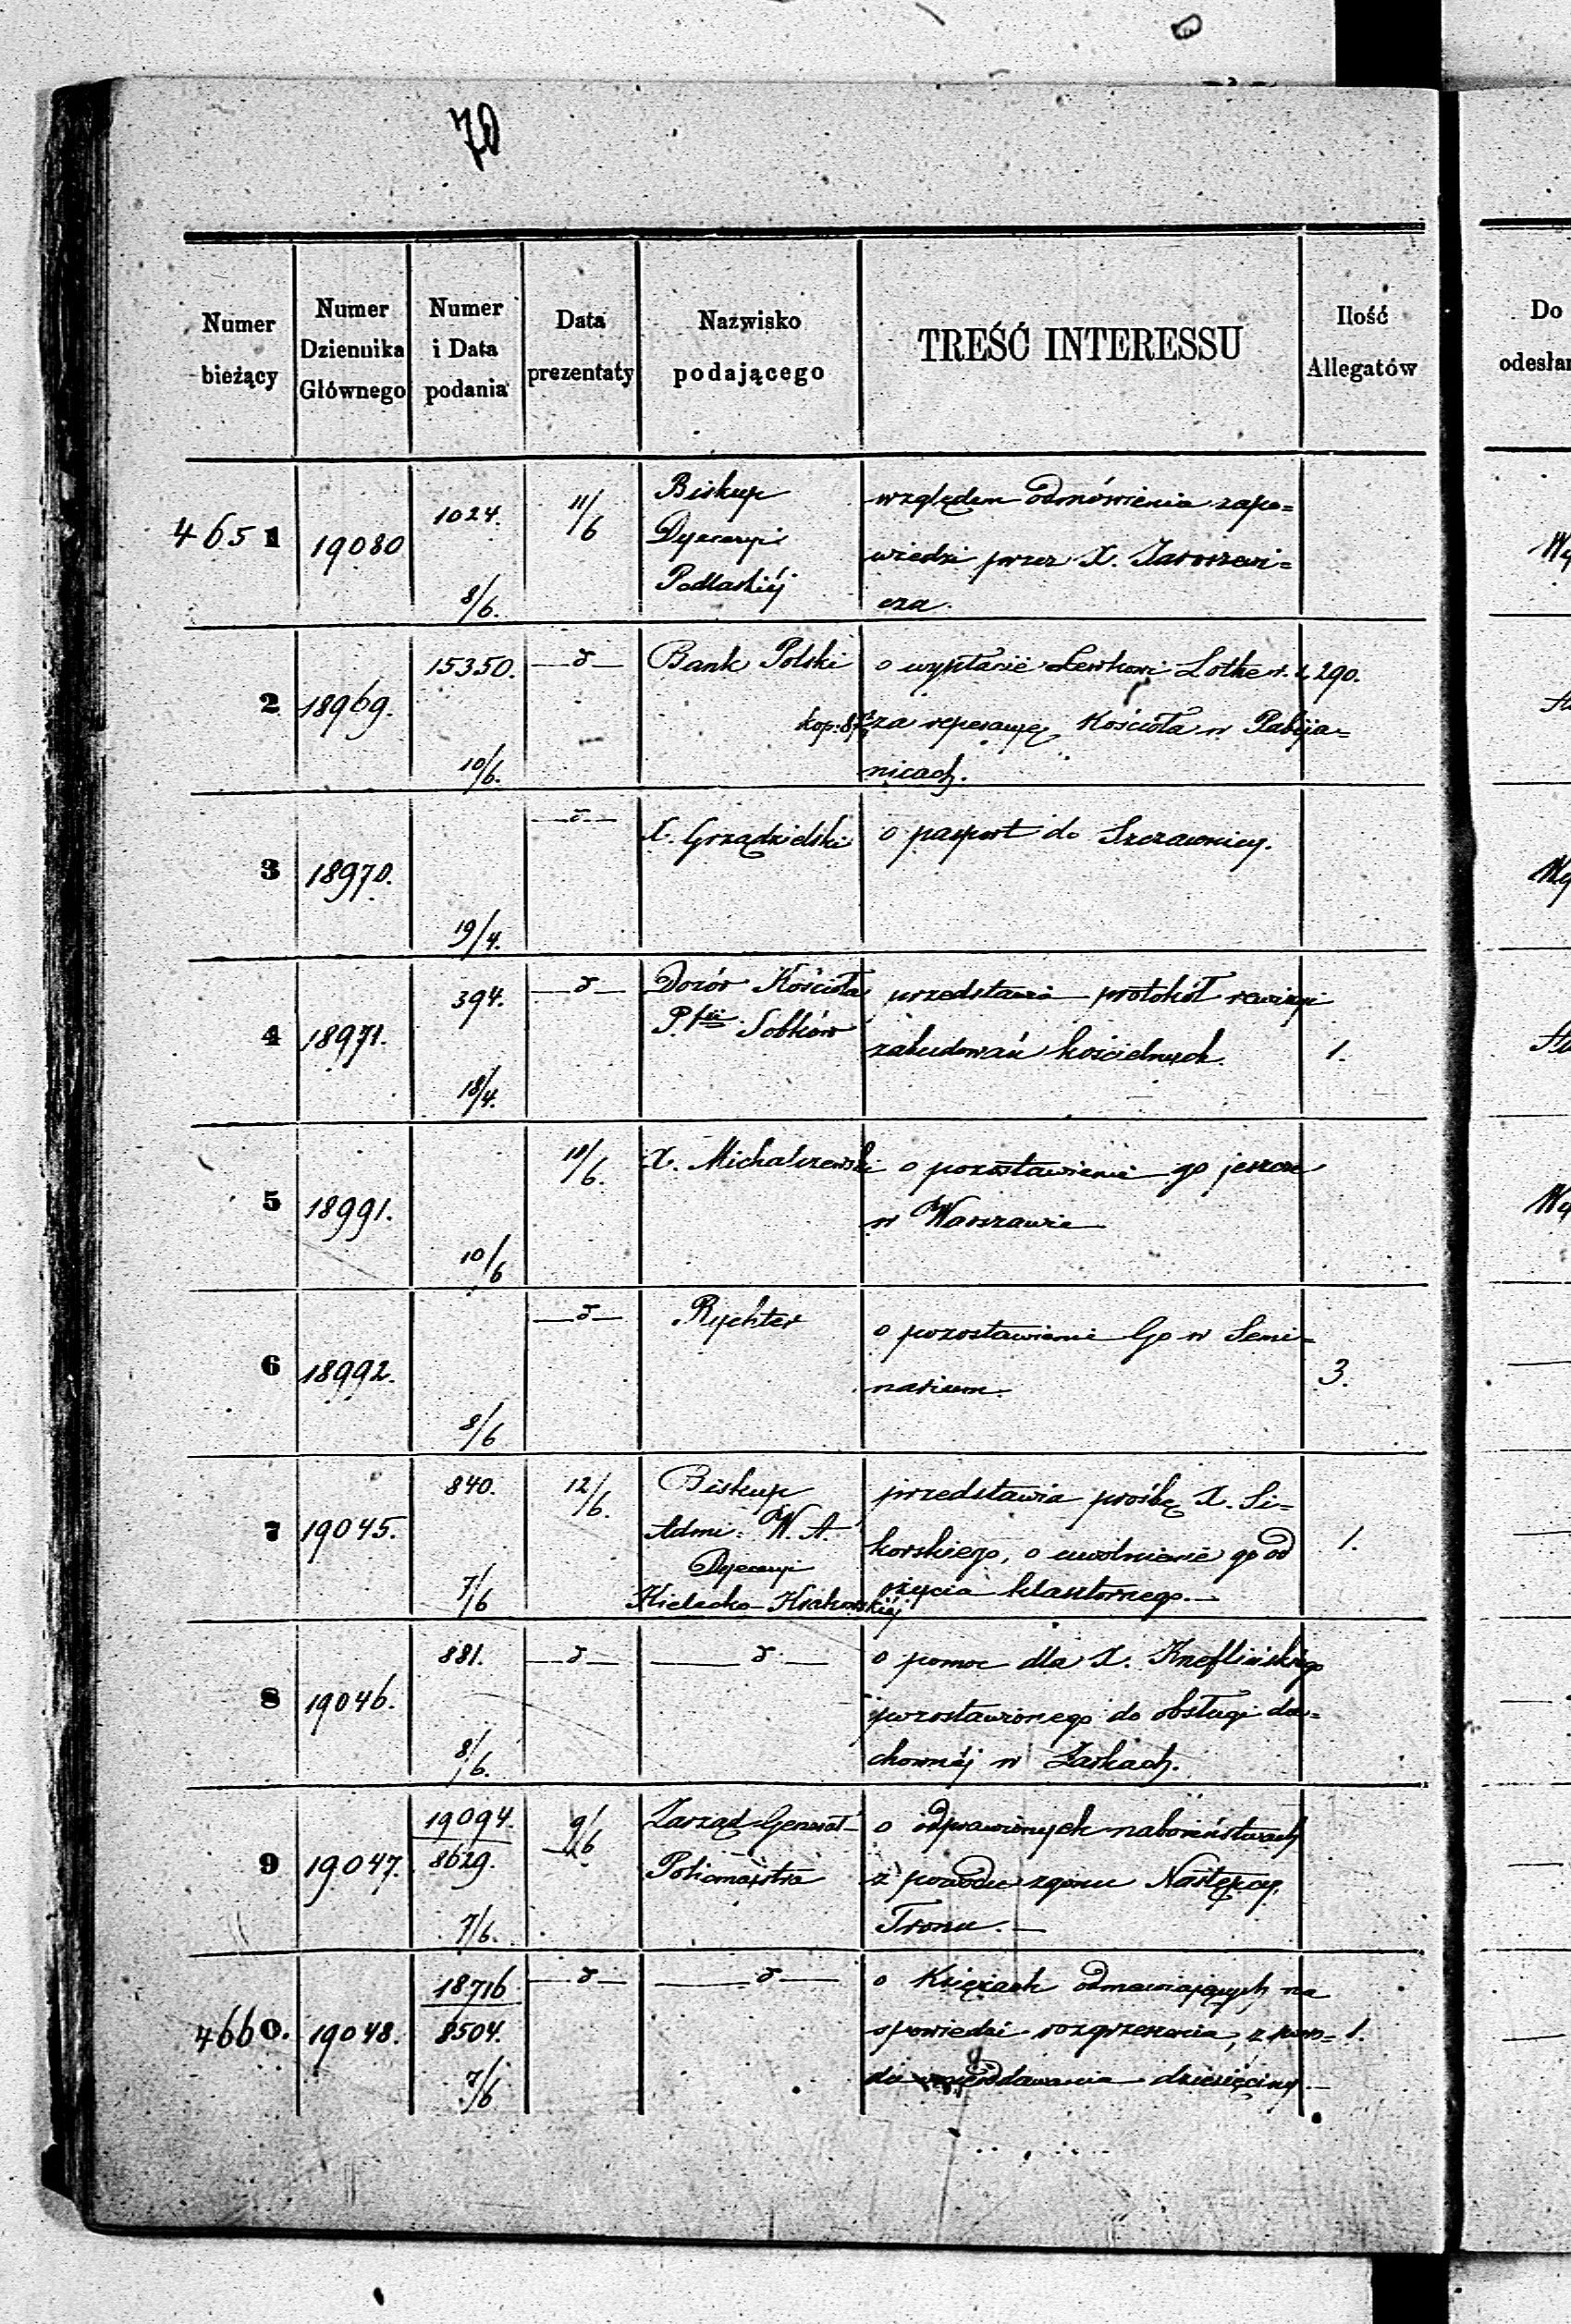 70
Numer bieżący
Numer Dziennika Głównego
Numer i Data podania
Data prezentaty
Nazwisko podającego
TREŚĆ INTERESSU
Ilość Allegatów
Do
odesłan
4651 19080 1024. 8/6. 11/6
Biskup
Dyecezyi
Podlaskiéj
względem odmówienia zapo=
wiedzi przez X. Jaroszewi=
cza.
2 18969. 15350. 10/6. —d—
Bank Polski
o wypłacie Lewkowi Lothe r. s. 290.
kop: 87 za reperacyę Kościoła w Pabija=
nicach.
3 18970. 19/4. —d—
X. Grządzielski
o pasport do Szczawnicy.
4 18971. 394. 18/4. —d—
Dozór Kościoła
P.fii Sobków
przedstawia protokół rewizyi
zabudowań kościelnych. 1.
5 18991. 10/6 11/6.
X. Michalczewski
o pozostawienie go jeszcze
w Warszawie
6 18992. 8/6 —d—
Rychter
o pozostawienie Go w Semi=
narium. 3.
7 19045. 840. 7/6 12/6.
Biskup
Admi: W. A.
Dyecezyi
Kielecko-Krakowskiéj
przedstawia prośbę X. Si=
korskiego, o uwolnienie go od
życia klasztornego.— 1.
8 19046. 881. 8/6. —d— —d—
o pomoc dla X. Kneflińskiego
pozostawionego do obsługi du=
chownéj w Żarkach.
9 19047. 19094. 8629. 7/6. 9/6
Zarząd Generał-
Policmajstra
o odprawionych nabożeństwach
z powodu zgonu Następcy
Tronu.—
4660. 19048. 18716 8504. 7/6 —d— —d—
o Księżach odmawiających na
spowiedzi rozgrzeszenia, z powo= 1.
du nieoddawania dziesięciny.—